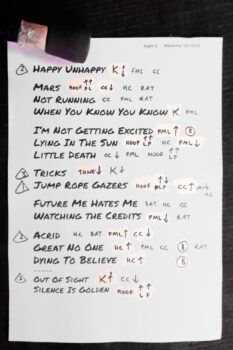 ② HAPPY UNHAPPY K↕ FML CC
MARS HOOF↑↑ CC↓ HC RAT
NOT RUNNING CC FML RAT
WHEN YOU KNOW YOU KNOW K FML
I'M NOT GETTING EXCITED FML↑ ⑧
LYING IN THE SUN HOOF↑↑LF HC FML↓
LITTLE DEATH CC↓ FML HOOF↑↑LF
TRICKS TONE↓ K↓
JUMP ROPE GAZERS HOOF↑↑LF CC↑ verb HC
FUTURE ME HATES ME RAT HC CC
WATCHING THE CREDITS FML↓ RAT
② ACRID HC RAT FML↑ CC↓
GREAT NO ONE HC↑ FML CC ⑧ RAT
DYING TO BELIEVE HC↑ ⑧
OUT OF SIGHT K↑ CC↓
SILENCE IS GOLDEN HOOF↑↑LF